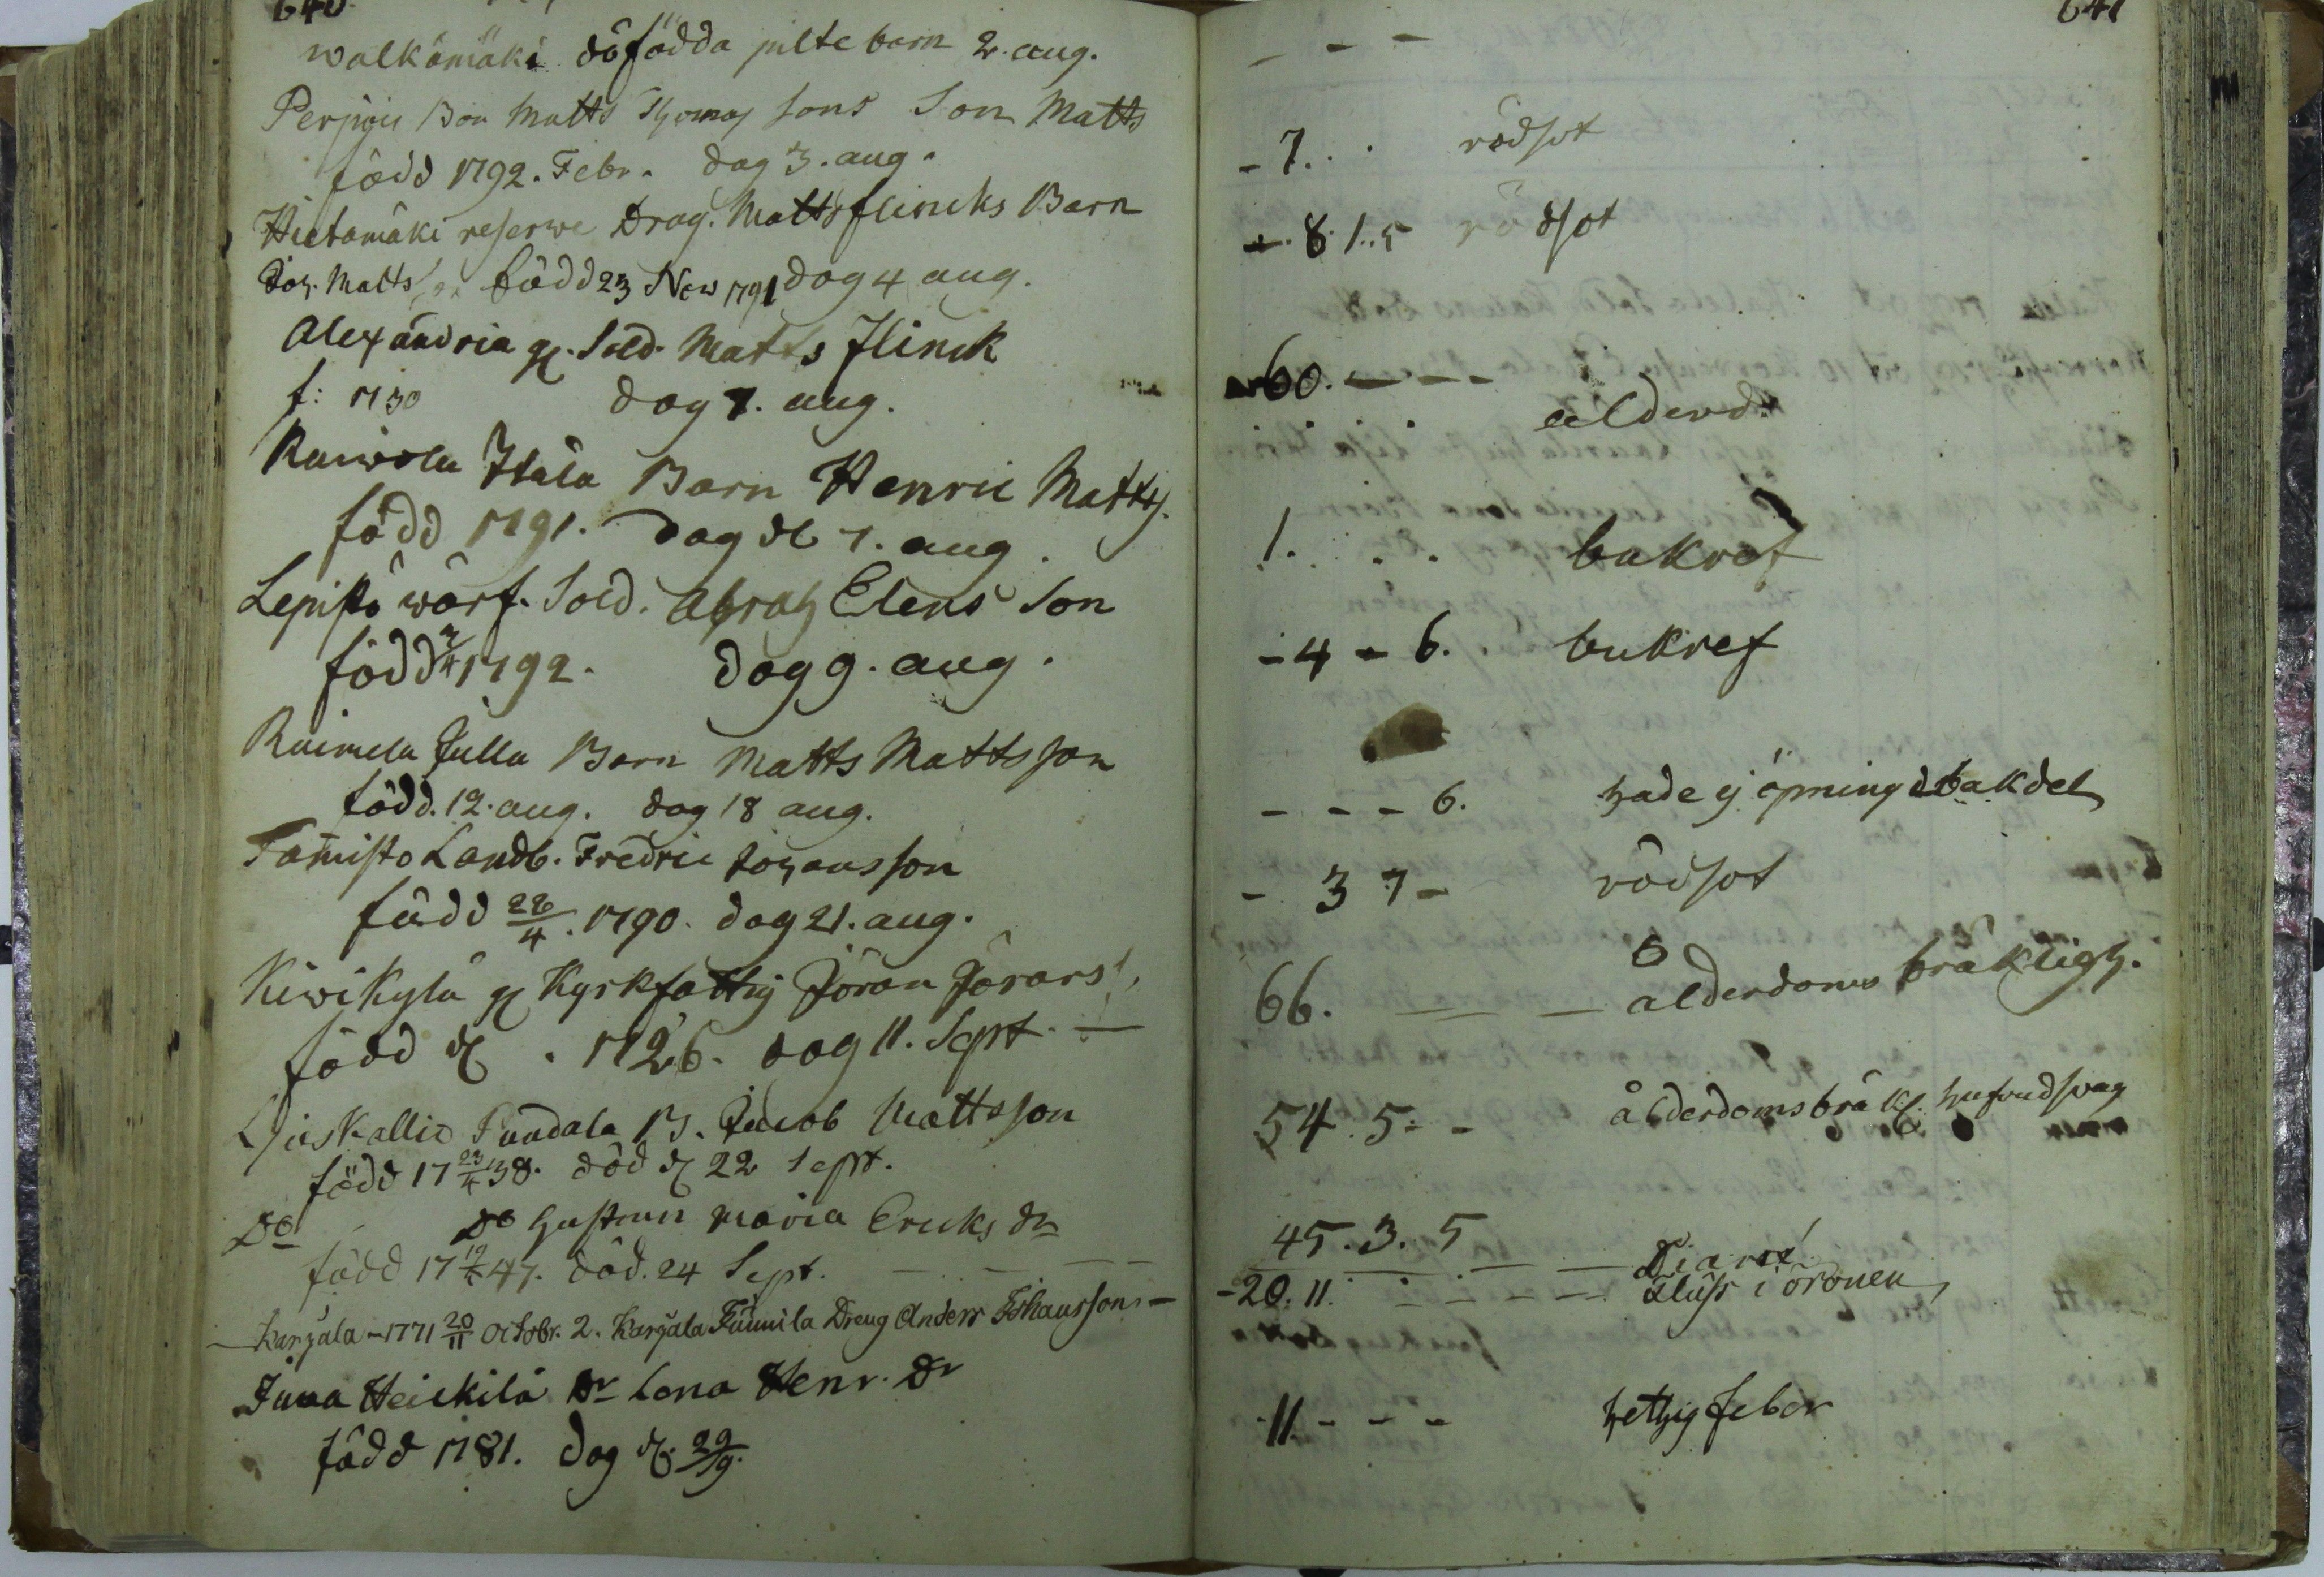 640.
walkämäki döfödda piltebarn 2. aug.
Bon Matts Thomas sons Son Matts
född 1792. Febr. dog 3. aug.
Hietamäki reserwe Drag. Matts flincks Barn
Joh. Matts son född 23 Nov 1791 dog 4 aug.
Alexandria gl. Sold. Matts Flinck
f: 1730 dog 7. aug.
Barn Henric Matts.
född 1791. dog d 7. aug.
Lepistö wärf. Sold. Abrah Elens Son
född 3/4 1792. dog 9. aug.
Raimela Julla Barn Matts Mattsson
född. 12. aug. dog 18 aug.
Tamisto Landb. Fredric Johansson
född 28/4. 1790. dog 21. aug.
Kiwikylä gl Kyrkfattig Jöran Jörans
född d . 1726. dog 11. Sept. —
B. Jacob Mattsson
född 17 23/4 38. död d 22 Sept.
Do Do hustrun Maria Ericks dr
född 17 19/6 47. död. 24 Sept. — — — —
Karjala - 1771 20/11 Octobr. 2. Karjala Dreng Anders Johansson -
Juva Heickilä Dr Lena Henr. Dr
född 1781. dog d. 29/9.
641
- - -
- 7. . . rödsot
-. 8. 1..5 rödsot
60. - - -
. . . ålderd.
1. . . . bukref
- 4 - 6. bukref
- - - 6. hade ej öpning bakdel
- 3 7 - rödsot
66. — — — ålderdoms bräkligh.
54. 5. - - ålderdomsbräkl. hufvudswag
45. 3. 5 — — Diarré
- 20. 11. - - - - - Fluss i öronen
11 - - - hettzig feber